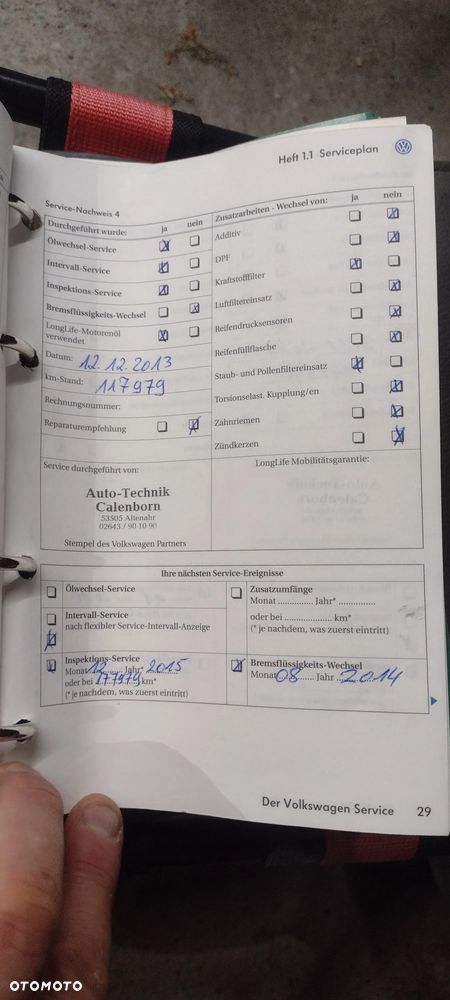 Heft 1.1 Serviceplan
Service-Nachweis 4
Durchgeführt wurde: ja nein
Ölwechsel-Service
Intervall-Service
Inspektions-Service
Bremsflüssigkeits-Wechsel
LongLife-Motorenöl
verwendet
Datum: 12.12.2013
km-Stand: 117979
Rechnungsnummer:
Reparaturempfehlung
Zusatzarbeiten - Wechsel von: ja nein
Additiv
DPF
Kraftstofffilter
Luftfiltereinsatz
Reifendrucksensoren
Reifenfüllflasche
Staub- und Pollenfiltereinsatz
Torsionselast. Kupplung/en
Zahnriemen
Zündkerzen
Service durchgeführt von:
Auto-Technik
Calenborn
53505 Altenahr
02643 / 90 10 90
Stempel des Volkswagen Partners
LongLife Mobilitätsgarantie:
Ihre nächsten Service-Ereignisse
Ölwechsel-Service
Intervall-Service
nach flexibler Service-Intervall-Anzeige
Inspektions-Service
Monat 12 Jahr* 2015
oder bei 177979 km*
(* je nachdem, was zuerst eintritt)
Zusatzumfänge
Monat .............. Jahr* ...............
oder bei ................... km*
(* je nachdem, was zuerst eintritt)
Bremsflüssigkeits-Wechsel
Monat 08 Jahr 2014
Der Volkswagen Service 29
OTOMOTO